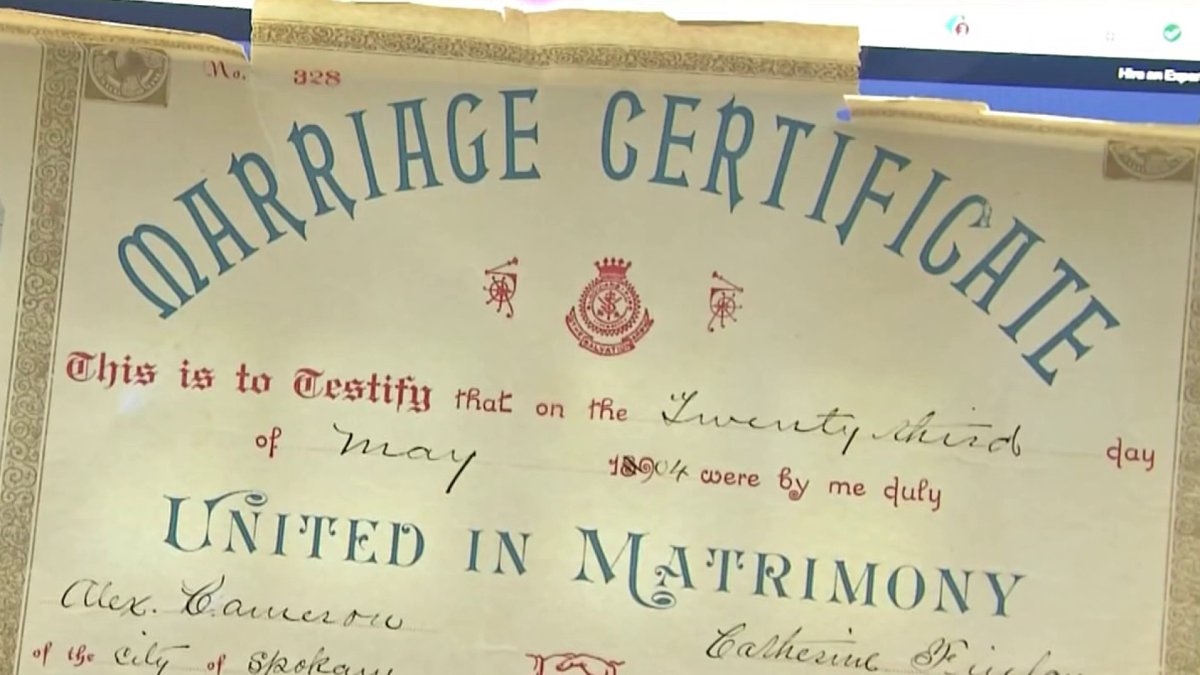 Hire an Exper
No. 328
MARRIAGE CERTIFICATE
THE SALVATION ARMY
This is to Testify that on the Twenty third day
of May 1904 were by me duly
UNITED IN MATRIMONY
Alex. Cameron
Catherine
of the City of Spokan